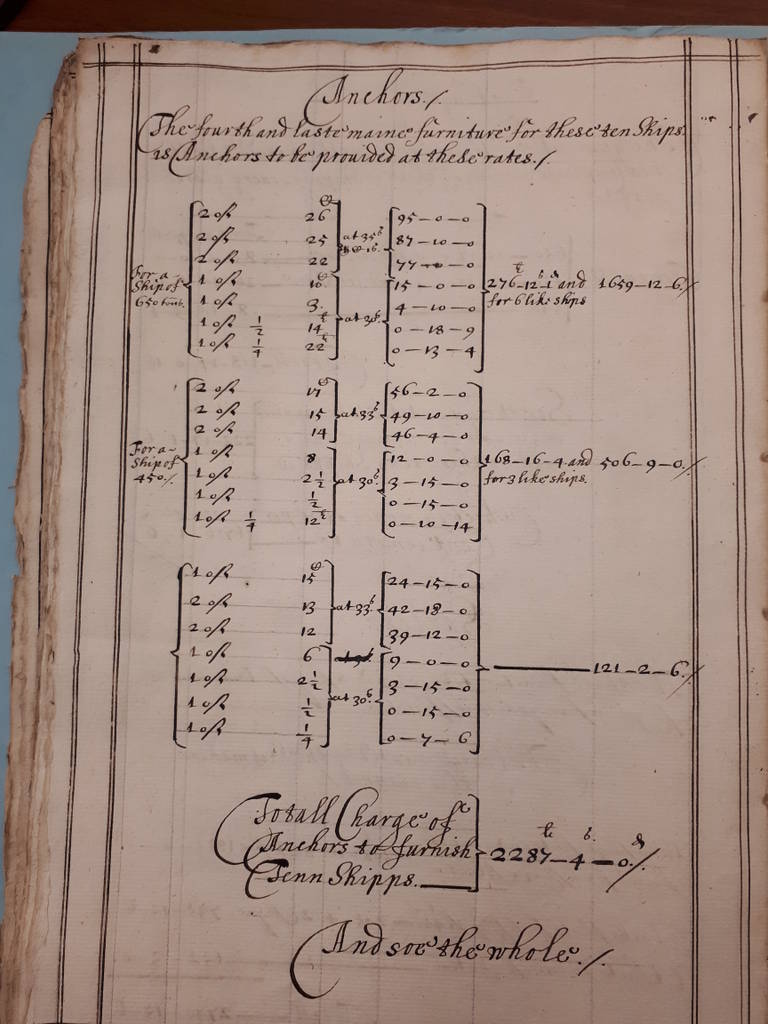 Anchors./
The fourth and laste maine furniture for these ten Ships
is Anchors to be prouided at these rates./
For a Ship of 650 tont.
2 of 26 at 35s 95-0-0
2 of 25 87-10-0
2 of 22 77-0-0
1 of 10 at 30s 15-0-0
1 of 3 4-10-0
1 of 1/2 14 0-18-9
1 of 1/4 22 0-13-4
276-12-1 and 1659-12-6./
for 6 like ships
For a Ship of 450./
2 of 17 at 33s 56-2-0
2 of 15 49-10-0
2 of 14 46-4-0
1 of 8 at 30s 12-0-0
1 of 2 1/2 3-15-0
1 of 1/2 0-15-0
1 of 1/4 12 0-10-14
168-16-4 and 506-9-0./
for 3 like ships.
1 of 15 at 33s 24-15-0
2 of 13 42-18-0
2 of 12 39-12-0
1 of 6 9-0-0
1 of 2 1/2 at 30s 3-15-0
1 of 1/2 0-15-0
1 of 1/4 0-7-6
121-2-6./
Totall Charge of
Anchors to furnish
Tenn Shipps.
2287-4-0./
And soe the whole./